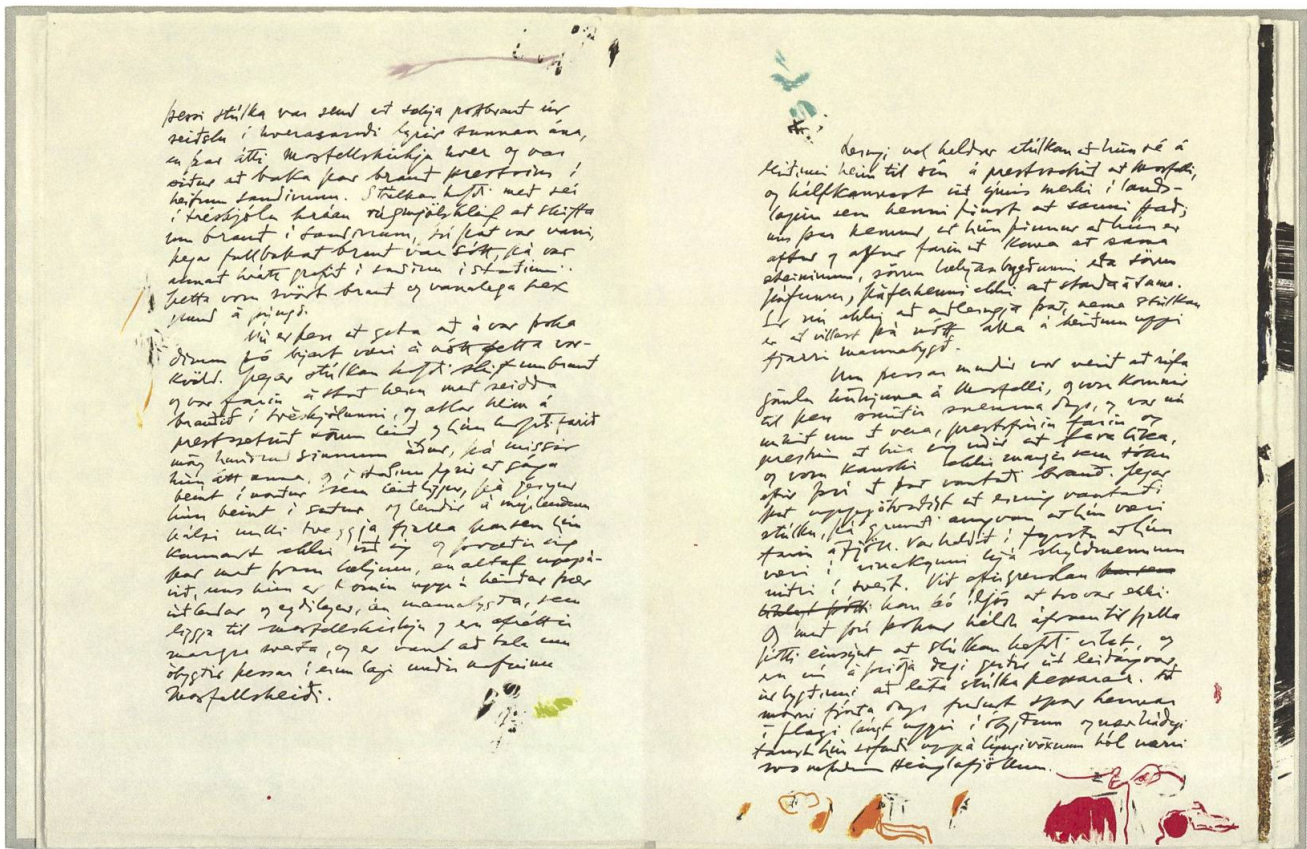 þessi stúlka var send at sækja pottbraut úr
seiðslu í hverasandi fyrir sunnan ána,
en þar átti Mosfellskirkja hver og var
siður at baka þar brauð prestsins í
heitum sandinum. Stúlkan hafði með sér
í tréskjólu hráan rúgmjölshleif at skifta
um brauð í sandinum, því þat var vani,
þegar fullbakat brauð var sótt, þá var
annað hrátt grafit í sandinn í staðinn.
þetta voru svört brauð og vanalega sex
pund á þyngd.
Nú er þess at geta að á var þoka
dimm þó bjart væri á nótt þetta vor-
kvöld. Þegar stúlkan hafði skift um brauð
og var farin áleiðis heim með seidda
brauðið í tréskjólunni, og ætlar heim á
prestssetrið sömu leið og hún hafði farið
mörg hundruð sinnum áður, þá missir
hún átt anna, og í staðinn fyrir at gánga
beint í norður sem leið liggur, þá geingur
hún beint í austur, og lendir á mýlendum
hálsi milli tveggja fjalla þar sem hún
kannast ekki við sig og
þar með fram læknum, en altaf uppá-
við, uns hún er komin uppá heiðar þær
víðlendar og ógreiðfærar, án mannabygða, sem
liggja til Mosfellskirkju og eru afréttir
margra sveita, og er vant að tala um
óbygðir þessar í einu lagi undir nafninu
Mosfellsheiði.
Leingi vel heldur stúlkan at hún sé á
leiðinni heim til sín á prestssetrið at Mosfelli,
og hálfkannast við ýmis merki í lands-
lagin sem henni finst at sanni það;
uns þar kemur at hún finnur at hún er
aftur og aftur farin at koma at sama
steininum, sömu lækjarbugðunni eða sömu
þúfunum, þá fer henni ekki at standa á sama.
Er nú ekki at orðleingja þat, nema stúlkan
er at villast þá nótt alla á heiðum uppi
fjarri mannabygð.
Um þessar mundir var verið at rífa
gömlu kirkjuna á Mosfelli, og voru komnir
til þess smiðir snemma dags, og var nú
mikið um at vera, prestsfrúin farin og
presturinn at búa sig undir at fara líka,
og voru kanski ekki margir sem tóku
eftir því at þar vantaði brauð. Þegar
þat uppgötvaðist at einnig vantaði
stúlku, þá grunaði aungvan at hún væri
farin á fjöll. Var haldið í fyrstu at hún
væri í vinakynni hjá skyldmennum
niðri í sveit. Við eftirgrenslan
kom þó í ljós at svo var ekki
Og með því þokan hélst áfram til fjalla
þótti einsýnt at stúlkan hefði vilst, og
er nú á þriðja degi gerður út leiðángur
úr bygðinni at leita stúlku þessarar. At
morni fjórða dags fundust spor hennar
í flagi lángt uppi í óbygðum og nær hádegi
fanst hún sofandi uppá lýngivöxnum hól nærri
svonefndum Heinglafjöllum.